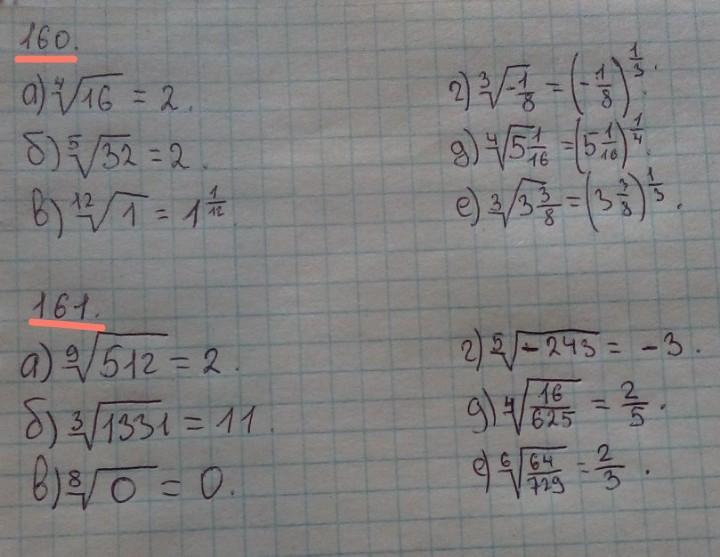 160.
а) ⁴√16 = 2.
б) ⁵√32 = 2.
в) ¹²√1 = 1^(1/12).
г) ³√(-1/8) = (-1/8)^(1/3).
д) ⁴√(5 1/16) = (5 1/16)^(1/4).
е) ³√(3 3/8) = (3 3/8)^(1/3).
161.
а) ⁹√512 = 2.
б) ³√1331 = 11.
в) ⁸√0 = 0.
г) ⁵√(-243) = -3.
д) ⁴√(16/625) = 2/5.
е) ⁶√(64/729) = 2/3.